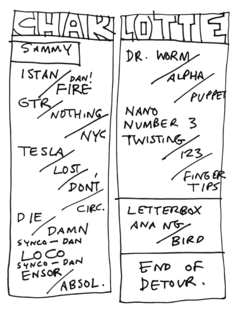 CHAR LOTTE
SAMMY
ISTAN/DAN!
FIRE
GTR/NOTHING
NYC
TESLA
LOST
DON'T
CIRC.
DIE
DAMN
SYNCO-DAN
LOCO
SYNCO-DAN
ENSOR
ABSOL.
DR. WORM
ALPHA
PUPPET
NANO
NUMBER 3
TWISTING
123
FINGER
TIPS
LETTERBOX
ANA NG
BIRD
END OF
DETOUR.